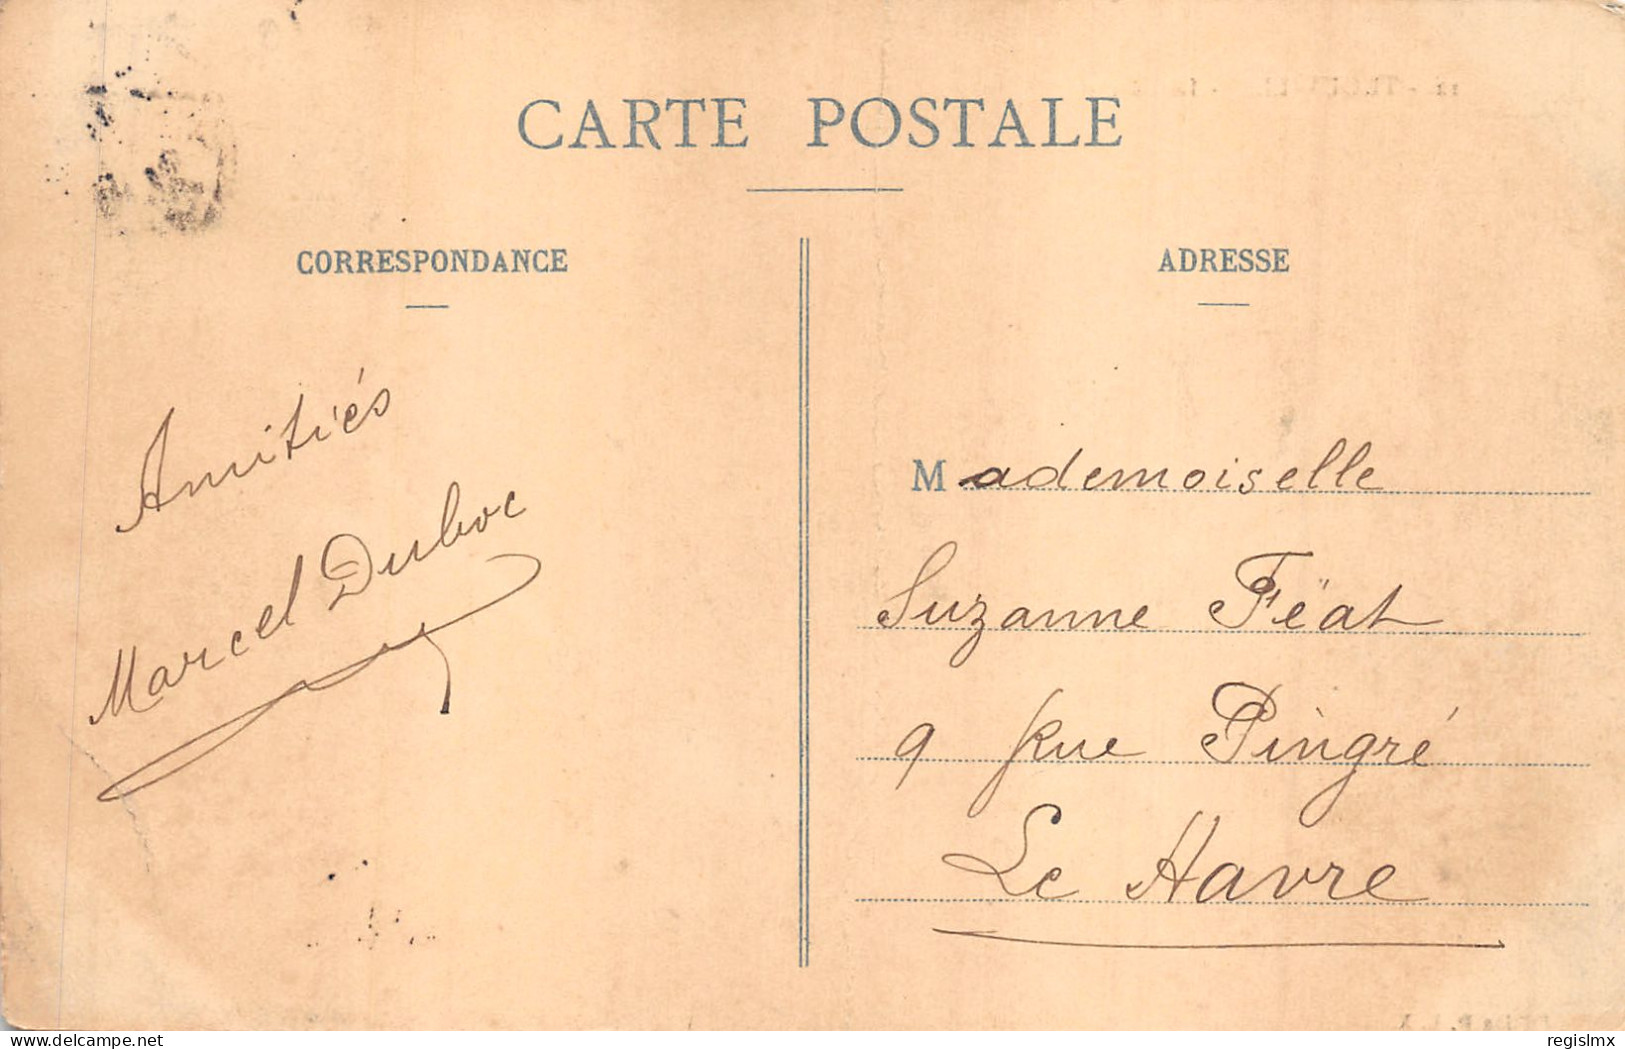 CARTE POSTALE
CORRESPONDANCE
Amitiés
Marcel Duboc
ADRESSE
Mademoiselle
Suzanne Féat
9 Rue Pingré
Le Havre
delcampe.net
regislmx